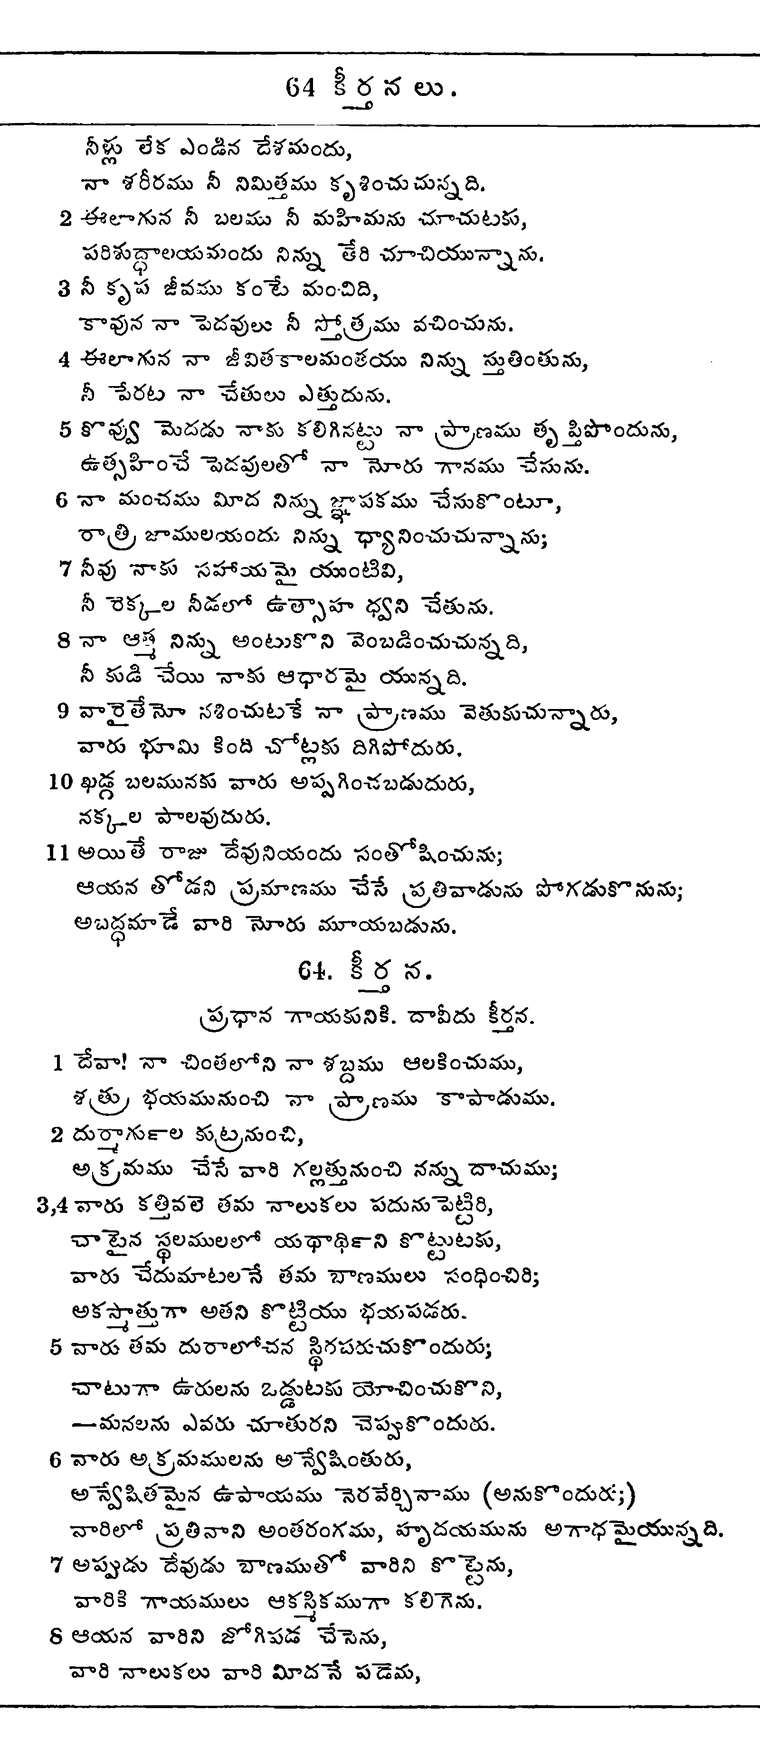 64 కీర్తనలు.
నీళ్లు లేక ఎండిన దేశమందు,
నా శరీరము నీ నిమిత్తము కృశించుచున్నది.
2 ఈలాగున నీ బలము నీ మహిమను చూచుటకు,
పరిశుద్ధాలయమందు నిన్ను తేరి చూచియున్నాను.
3 నీ కృప జీవము కంటే మంచిది,
కావున నా పెదవులు నీ స్తోత్రము వచించును.
4 ఈలాగున నా జీవితకాలమంతయు నిన్ను స్తుతింతును,
నీ పేరట నా చేతులు ఎత్తుదును.
5 కొవ్వు మెదడు నాకు కలిగినట్టు నా ప్రాణము తృప్తిపొందును,
ఉత్సహించే పెదవులతో నా నోరు గానము చేసును.
6 నా మంచము మీద నిన్ను జ్ఞాపకము చేసుకొంటూ,
రాత్రి జాములయందు నిన్ను ధ్యానించుచున్నాను;
7 నీవు నాకు సహాయమై యుంటివి,
నీ రెక్కల నీడలో ఉత్సాహ ధ్వని చేతును.
8 నా ఆత్మ నిన్ను అంటుకొని వెంబడించుచున్నది,
నీ కుడి చేయి నాకు ఆధారమై యున్నది.
9 వారైతేనో నశించుటకే నా ప్రాణము వెతుకుచున్నారు,
వారు భూమి కింది చోట్లకు దిగిపోదురు.
10 ఖడ్గ బలమునకు వారు అప్పగించబడుదురు,
నక్కల పాలవుదురు.
11 అయితే రాజు దేవునియందు సంతోషించును;
ఆయన తోడని ప్రమాణము చేసే ప్రతివాడును పోగడుకొనును;
అబద్ధమాడే వారి నోరు మూయబడును.
64. కీర్తన.
ప్రధాన గాయకునికి. దావీదు కీర్తన.
1 దేవా! నా చింతలోని నా శబ్దము ఆలకించుము,
శత్రు భయమునుంచి నా ప్రాణము కాపాడుము.
2 దుర్మాగుఁల కుట్రనుంచి,
అక్రమము చేసే వారి గల్లత్తునుంచి నన్ను దాచుము;
3,4 వారు కత్తివలె తమ నాలుకలు పదునుపెట్టిరి,
చాటైన స్థలములలో యథాథిఁని కొట్టుటకు,
వారు చేదుమాటలనే తమ బాణములు సంధించిరి;
అకస్మాత్తుగా అతని కొట్టియు భయపడరు.
5 వారు తమ దురాలోచన స్థిరపరుచుకొందురు;
చాటుగా ఉరులను ఒడ్డుటకు యోచించుకొని,
—మనలను ఎవరు చూతురని చెప్పుకొందురు.
6 వారు అక్రమములను అన్వేషింతురు,
అన్వేషితమైన ఉపాయము నెరవేర్చినాము (అనుకొందురు;)
వారిలో ప్రతివాని అంతరంగము, హృదయమును అగాధమైయున్నది.
7 అప్పుడు దేవుడు బాణముతో వారిని కొట్టెను,
వారికి గాయములు ఆకస్మికముగా కలిగెను.
8 ఆయన వారిని జోగిపడ చేసెను,
వారి నాలుకలు వారి మీదనే పడెను,